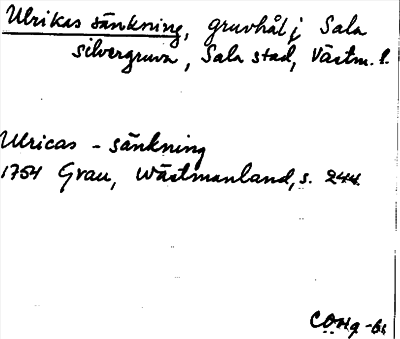 Ulrikas sänkning, gruvhål i Sala
silvergruva, Sala stad, Västm. l.
Ulricas - sänkning
1754 Grau, Wästmanland, s. 244.